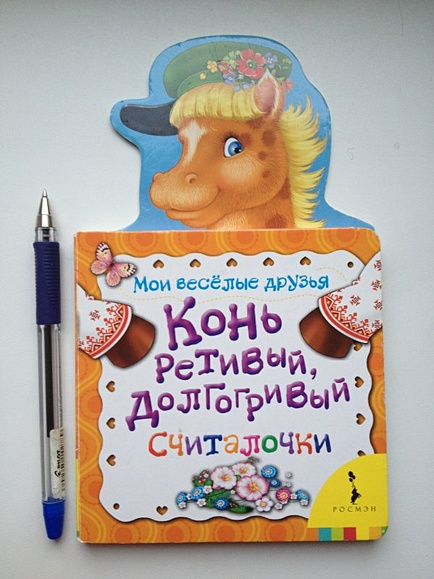 Мои весёлые друзья
Конь
ретивый,
долгогривый
Считалочки
РОСМЭН